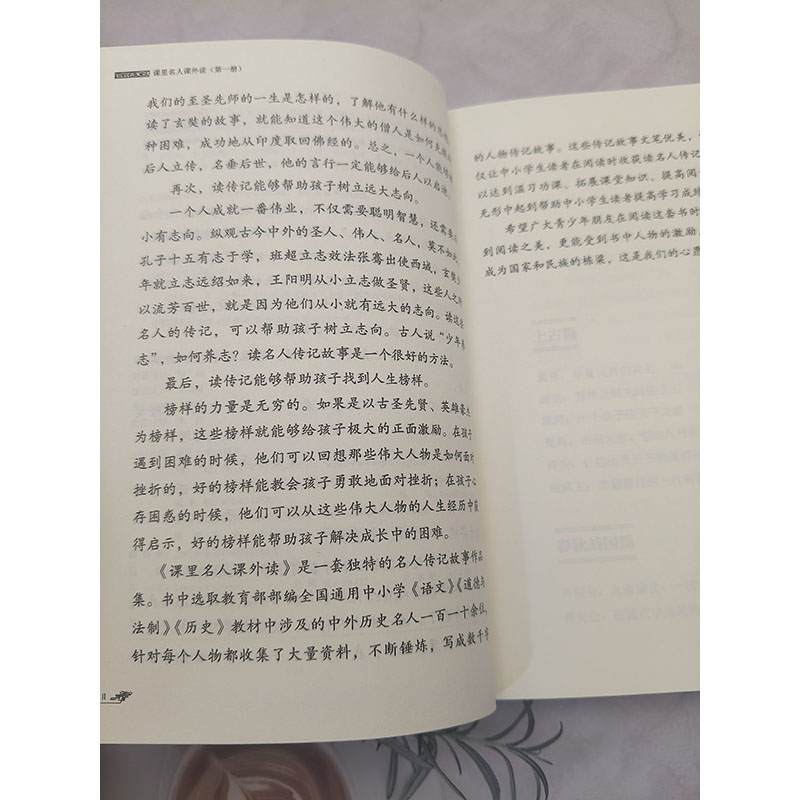 课里名人课外读（第一册）
我们的至圣先师的一生是怎样的，了解他有什么样的思
读了玄奘的故事，就能知道这个伟大的僧人是如何克服
种困难，成功地从印度取回佛经的。总之，一个人能够
后人立传，名垂后世，他的言行一定能够给后人以启
再次，读传记能够帮助孩子树立远大志向。
一个人成就一番伟业，不仅需要聪明智慧，还需要
小有志向。纵观古今中外的圣人、伟人、名人，莫不如此
孔子十五有志于学，班超立志效法张骞出使西域，玄奘少
年就立志远绍如来，王阳明从小立志做圣贤，这些人之所
以流芳百世，就是因为他们从小就有远大的志向。读这些
名人的传记，可以帮助孩子树立志向。古人说“少年养
志”，如何养志？读名人传记故事是一个很好的方法。
最后，读传记能够帮助孩子找到人生榜样。
榜样的力量是无穷的。如果是以古圣先贤、英雄豪杰
为榜样，这些榜样就能够给孩子极大的正面激励。在孩子
遇到困难的时候，他们可以回想那些伟大人物是如何面对
挫折的，好的榜样能教会孩子勇敢地面对挫折；在孩子心
存困惑的时候，他们可以从这些伟大人物的人生经历中获
得启示，好的榜样能帮助孩子解决成长中的困难。
《课里名人课外读》是一套独特的名人传记故事作品
集。书中选取教育部部编全国通用中小学《语文》《道德与
法制》《历史》教材中涉及的中外历史名人一百一十余位，
针对每个人物都收集了大量资料，不断锤炼，写成数千字
II
的人物传记故事。这些传记故事文笔优美，
仅让中小学生读者在阅读时收获读名人传记
以达到温习功课、拓展课堂知识、提高阅
无形中起到帮助中小学生读者提高学习成
希望广大青少年朋友在阅读这套书时
到阅读之美，更能受到书中人物的激励，
成为国家和民族的栋梁，这是我们的心愿